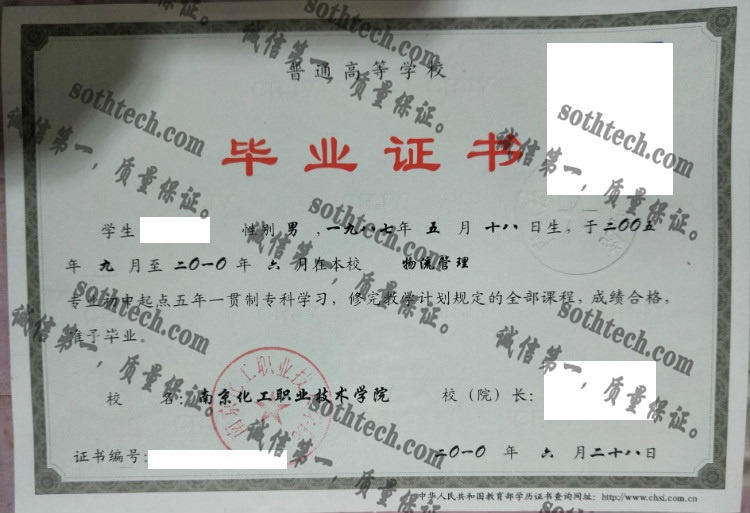 普通高等学校
毕业证书
学生 性别 男 ,一九八七年 五 月 十八 日生，于 二00五
年 九 月至 二0一0 年 六 月在本校 物流管理
专业初中起点五年一贯制专科学习，修完教学计划规定的全部课程，成绩合格，
准予毕业。
校 名：南京化工职业技术学院 校（院）长：
证书编号： 二0一0 年 六 月二十八日
中华人民共和国教育部学历证书查询网址：http://www.chsi.com.cn
南京化工职业技术
sothtech.com
诚信第一，质量保证。
sothtech.com
诚信第一，质量保证。
sothtech.com
诚信第一，质量保证。
sothtech.com
诚信第一，质量保证。
sothtech.com
诚信第一，质量保证。
sothtech.com
诚信第一，质量保证。
sothtech.com
诚信第一，质量保证。
sothtech.com
诚信第一，质量保证。